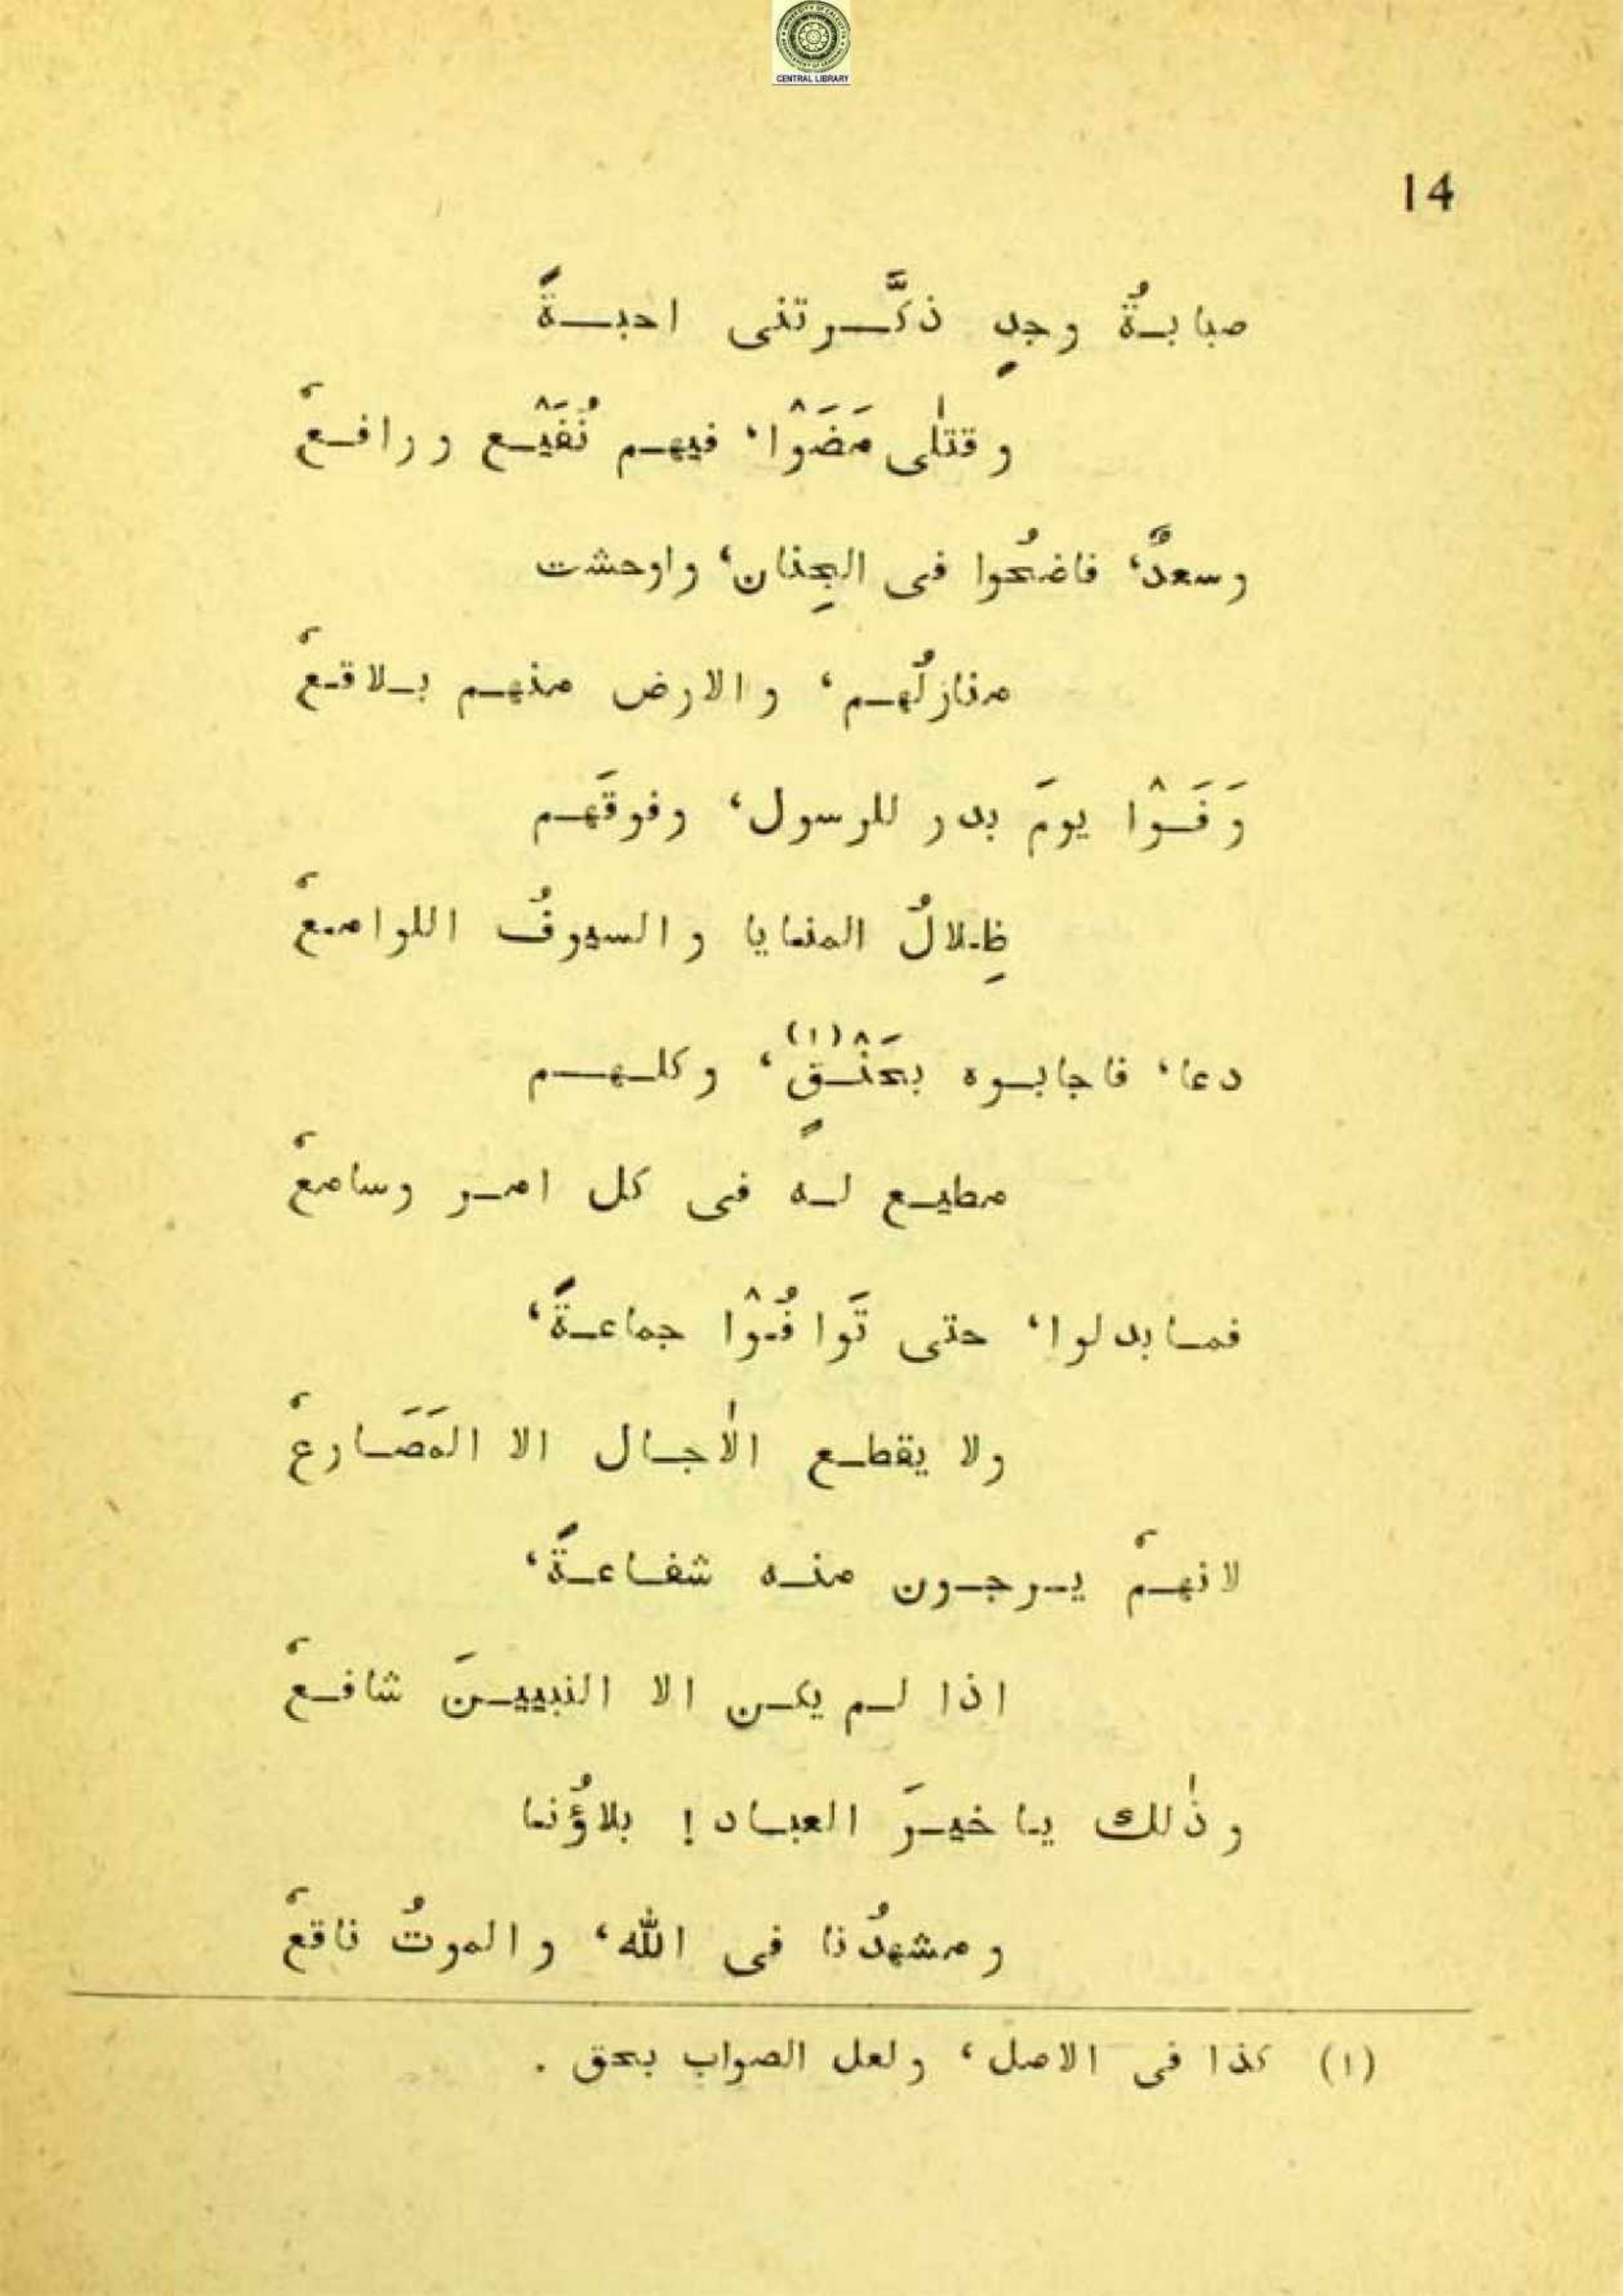 UNIVERSITY OF CALCUTTA
CENTRAL LIBRARY
14
صبابةٌ وجدٍ ذكَّرتنى احبةً
و قتلٰى مَضَوْا، فيهم نُفَيْع و رافعْ
وسعدٌ، فاضحُوا فى الجِنان، واوحشت
منازلُهم، والارض منهم بلاقعْ
وَفَوْا يومَ بدر للرسول، وفوقَهم
ظِلالُ المنايا والسيوفُ اللوامعْ
دعا، فاجابوه بحَنْقٍ(١)، وكلهم
مطيع له فى كل امر وسامعْ
فما بدلوا، حتى تَوافُوْا جماعةً،
ولا يقطع الاٰجال الا المَصَارعْ
لانهمْ يرجون منه شفاعةً،
اذا لم يكن الا النبيينَ شافعْ
وذٰلك يا خيرَ العباد! بلاؤُنا
ومشهدُنا فى الله، والموتُ ناقعْ
(١) كذا فى الاصل، ولعل الصواب بحق .